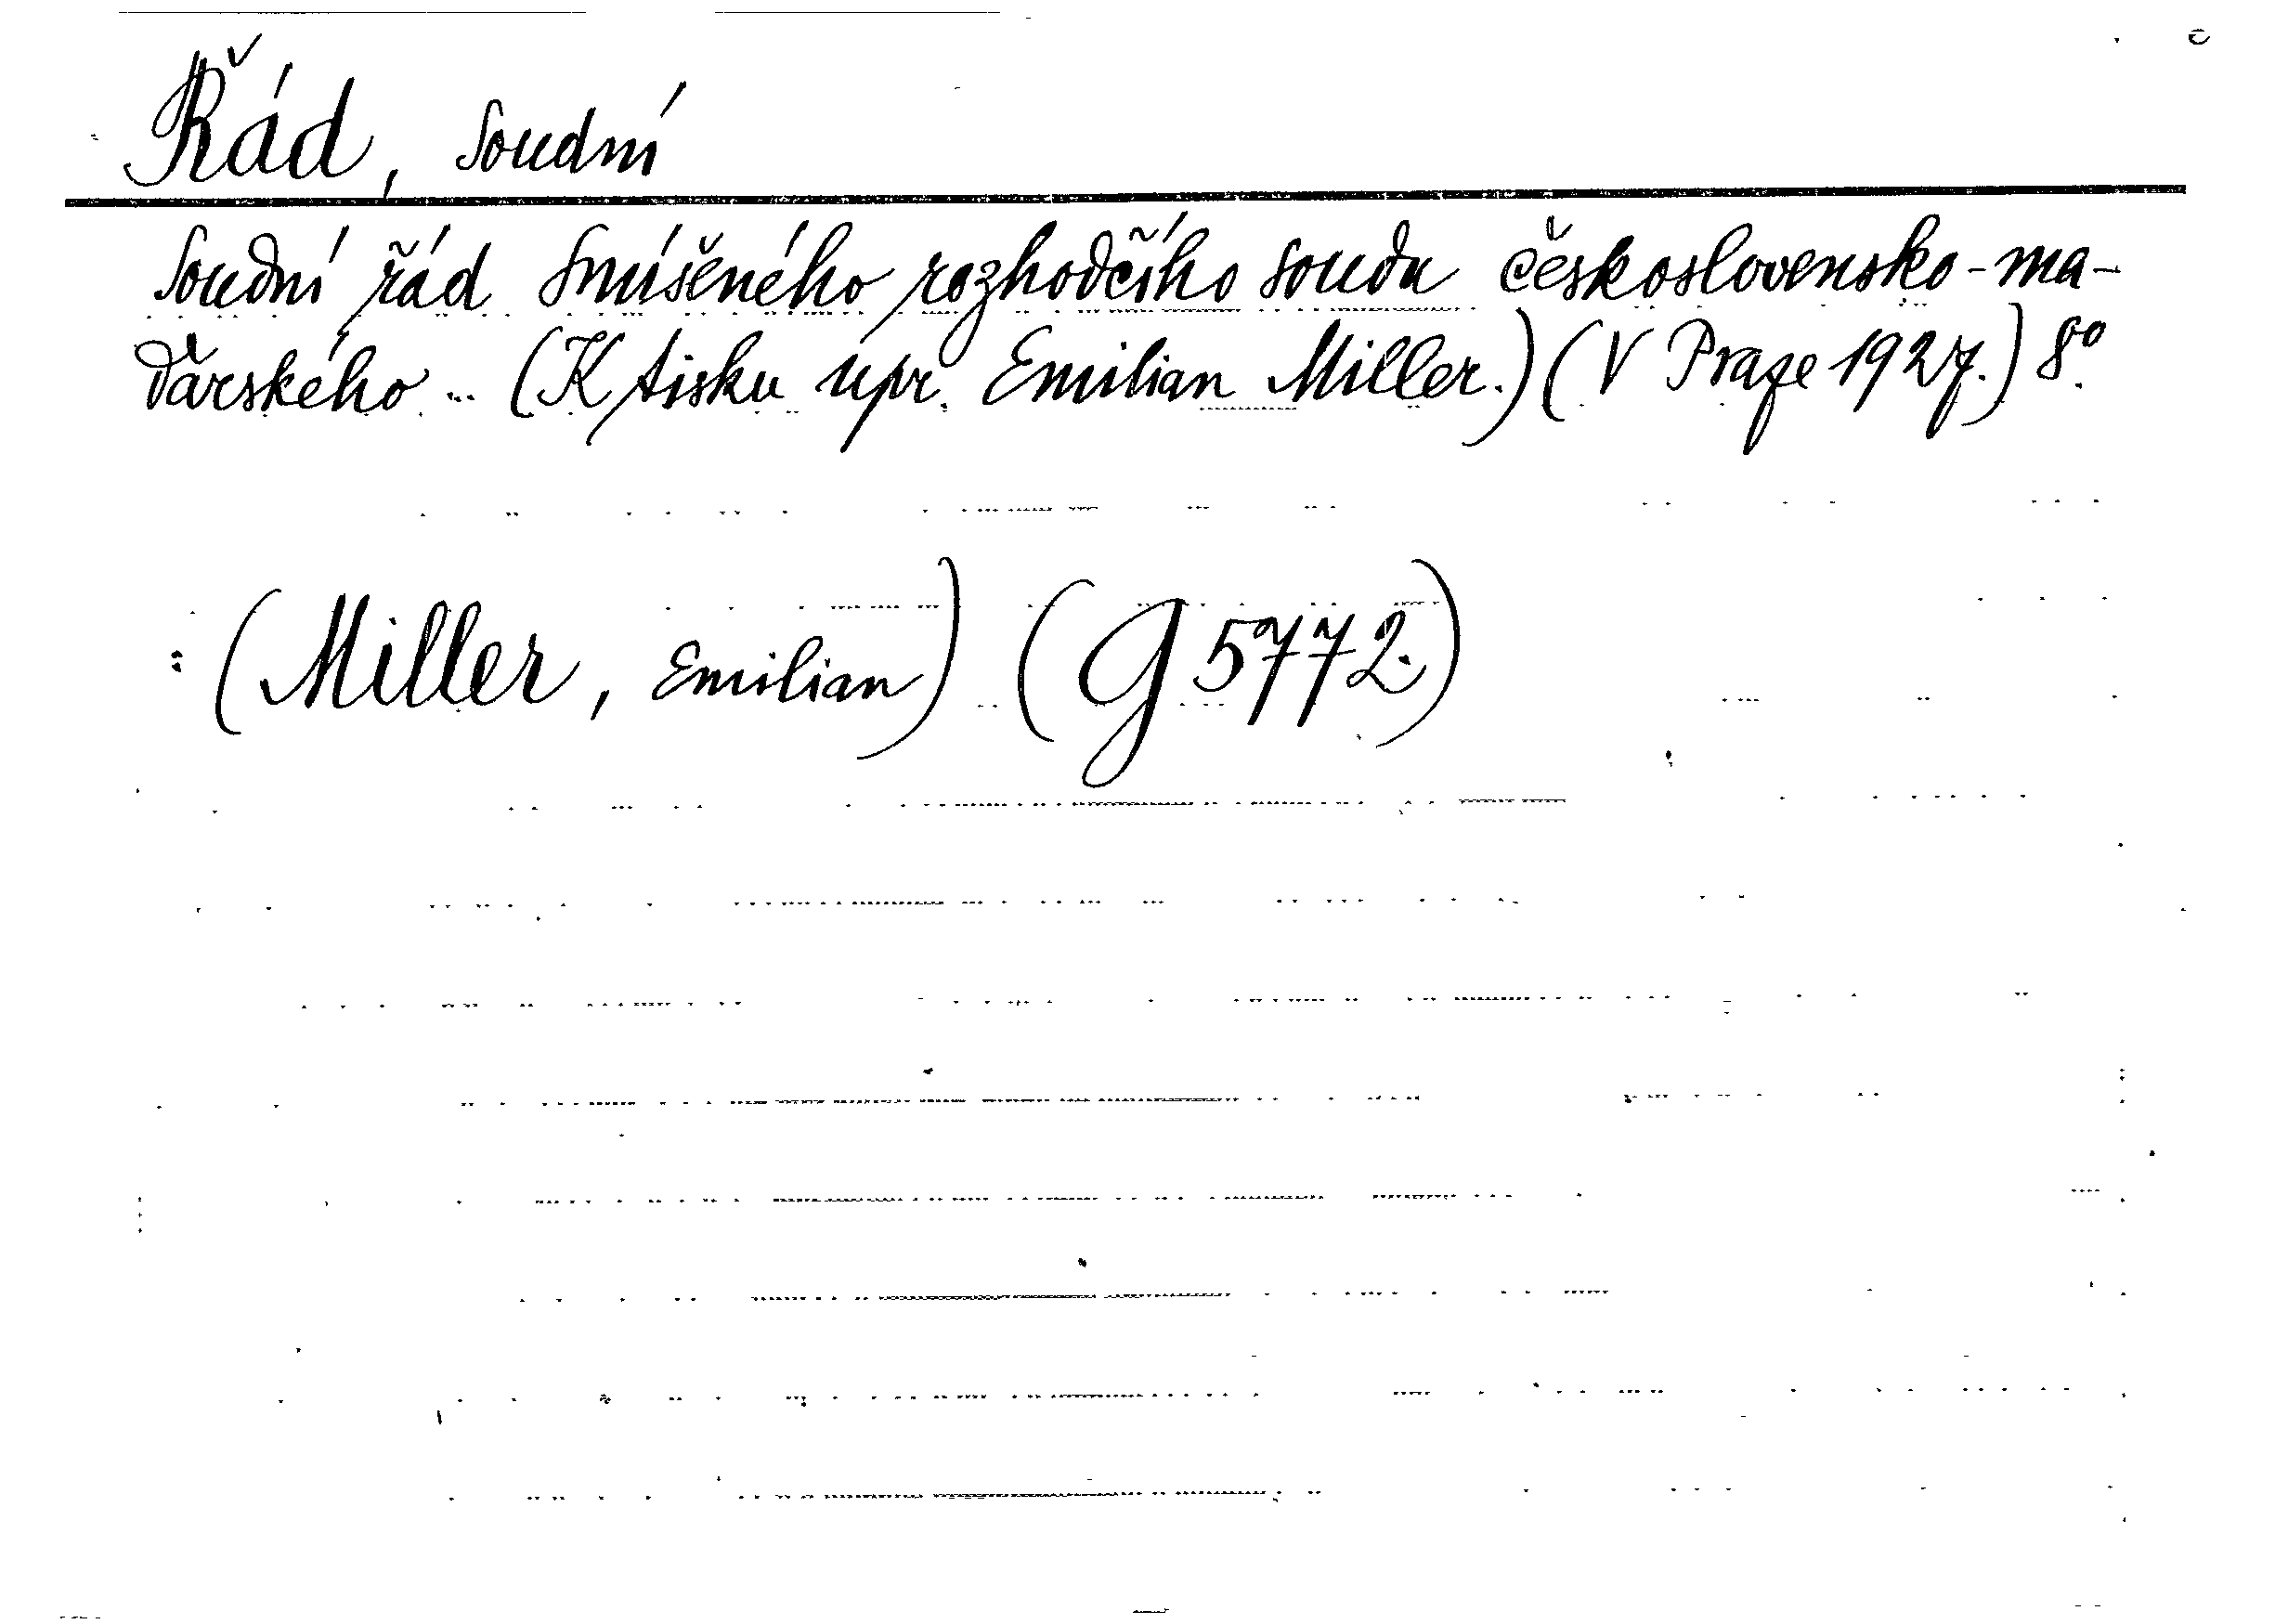 Řád, soudní
Soudní řád Smíšeného rozhodčího soudu československo-ma-
ďarského... (K tisku upr. Emilian Miller.) (V Praze 1927.) 8°.
: (Miller, Emilian) (G 5772.)